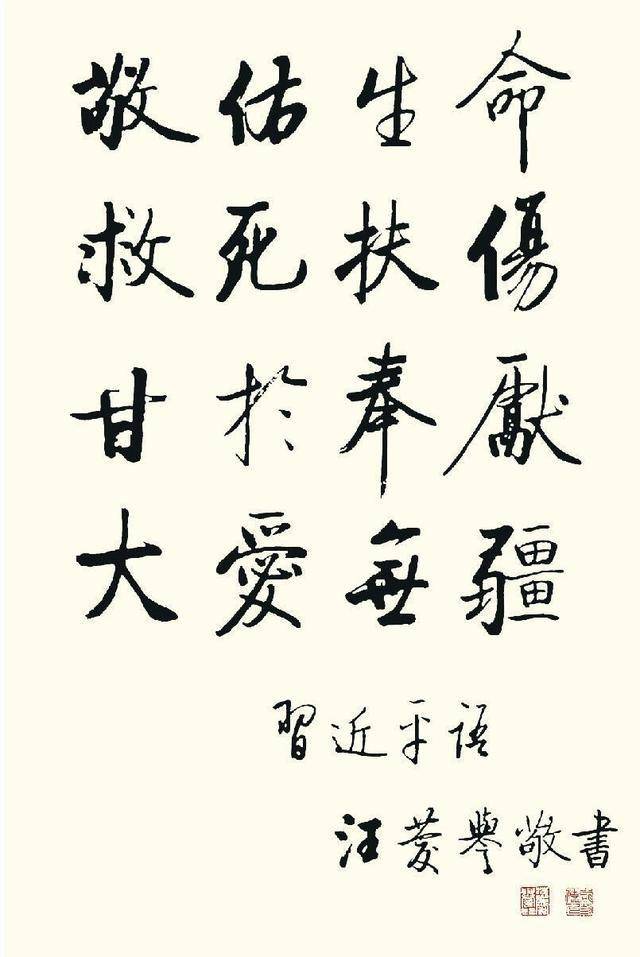 敬佑生命
救死扶傷
甘於奉獻
大愛無疆
習近平語
汪慶譽敬書